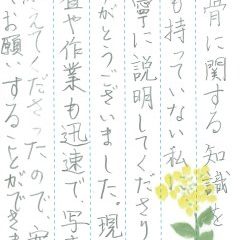 骨に関する知識を
も持っていない私
寧に説明してくださり
がとうございました。現
や作業も迅速で、写
えてくださったので、安
お願いすることができま